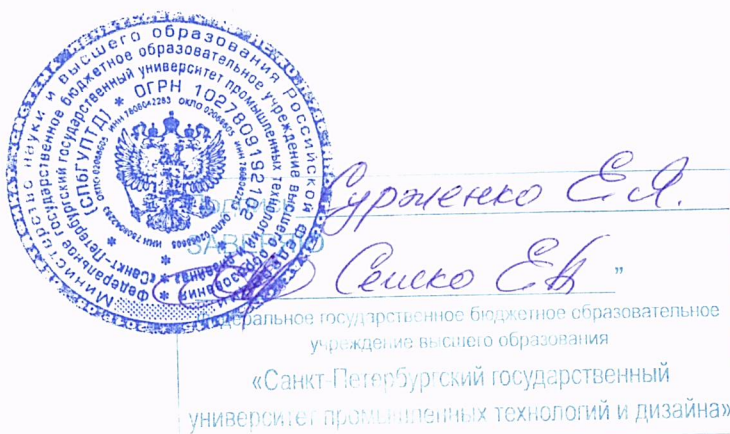 Министерство науки и высшего образования Российской Федерации
Федеральное государственное бюджетное образовательное учреждение высшего образования
«Санкт-Петербургский государственный университет промышленных технологий и дизайна»
(СПбГУПТД) * ОГРН 1027809192102 *
ИНН 7808042283 ОКПО 02068605
Сурженко Е.Я.
ЗАВЕРЯЮ
Е.А.
Федеральное государственное бюджетное образовательное
учреждение высшего образования
«Санкт-Петербургский государственный
университет промышленных технологий и дизайна»